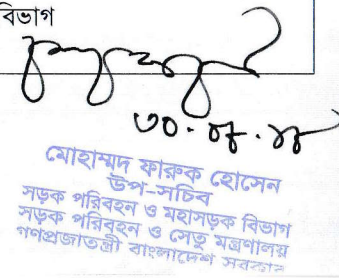 বিভাগ
৩০.০৮.১৮
মোহাম্মদ ফারুক হোসেন
উপ-সচিব
সড়ক পরিবহন ও মহাসড়ক বিভাগ
সড়ক পরিবহন ও সেতু মন্ত্রণালয়
গণপ্রজাতন্ত্রী বাংলাদেশ সরকার